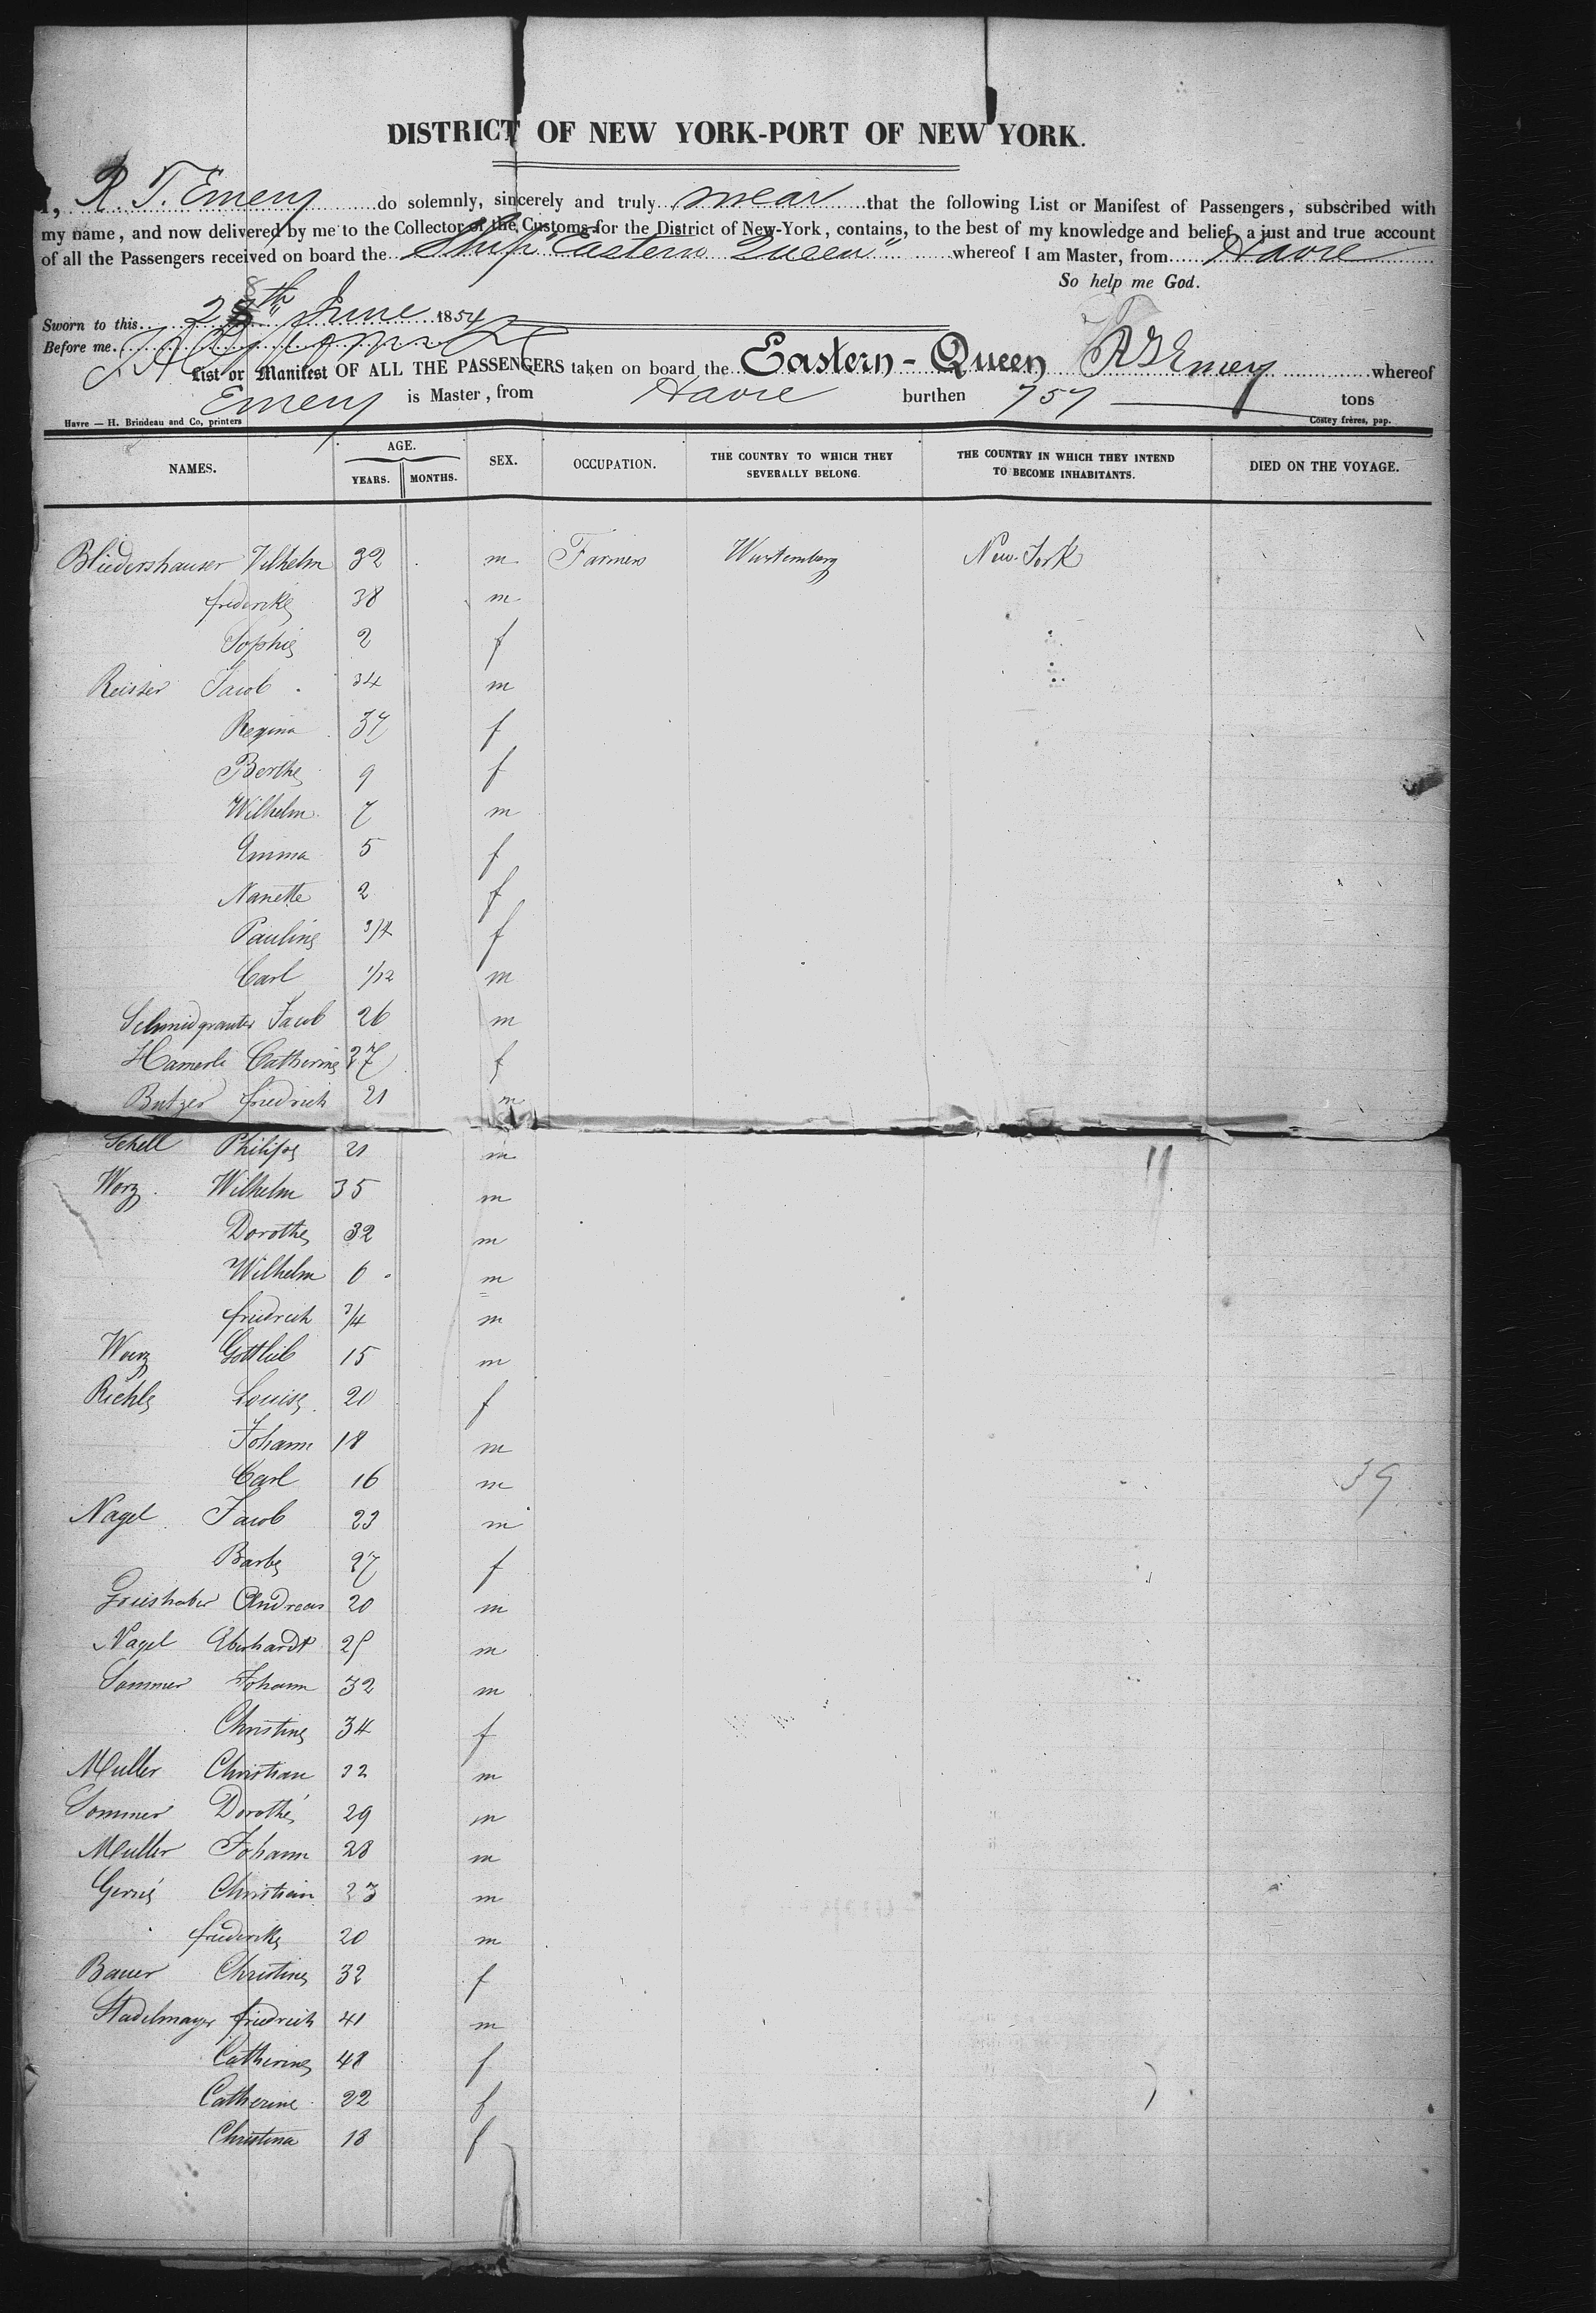 DISTRICT OF NEW YORK-PORT OF NEW YORK.
I, R. T. Emery do solemnly, sincerely and truly swear that the following List or Manifest of Passengers, subscribed with
my name, and now delivered by me to the Collector of the Customs for the District of New-York, contains, to the best of my knowledge and belief, a just and true account
of all the Passengers received on board the Ship "Eastern Queen" whereof I am Master, from Havre
So help me God.
Sworn to this 28th June 1854
Before me
List or Manifest OF ALL THE PASSENGERS taken on board the Eastern-Queen R T Emery whereof
Emery is Master, from Havre burthen 757 tons
Havre — H. Brindeau and Co, printers Costey frères, pap.
NAMES. AGE. YEARS. MONTHS. SEX. OCCUPATION. THE COUNTRY TO WHICH THEY SEVERALLY BELONG. THE COUNTRY IN WHICH THEY INTEND TO BECOME INHABITANTS. DIED ON THE VOYAGE.
Bliedershauser Vilhelm 32 m Farmers Wurtemberg New-York
frederike 38 m
Sophie 2 f
Reister Jacob 34 m
Regina 37 f
Berthe 9 f
Wilhelm 7 m
Emma 5 f
Nanette 2 f
Pauline 3/4 f
Carl 1/12 m
Schmidgranter Jacob 26 m
Hamerle Catherine 27 f
Butzer friedrich 21 m
Schell Philipp 21 m
Worz Wilhelm 35 m
Dorothe 32 m
Wilhelm 6 m
friedrich 3/4 m
Worz Gottlieb 15 m
Riehle Louise 20 f
Johann 18 m
Carl 16 m
39
Nagel Jacob 23 m
Barbe 27 f
Grieshaber Andreas 20 m
Nagel Eberhardt 25 m
Sommer Johann 32 m
Christine 34 f
Muller Christian 32 m
Sommer Dorothé 29 m
Muller Johann 28 m
Christian 23 m
friederike 20 m
Bauer Christine 32 f
Stadelmayer friedrich 41 m
Catherine 48 f
Catherine 22 f
Christina 18 f